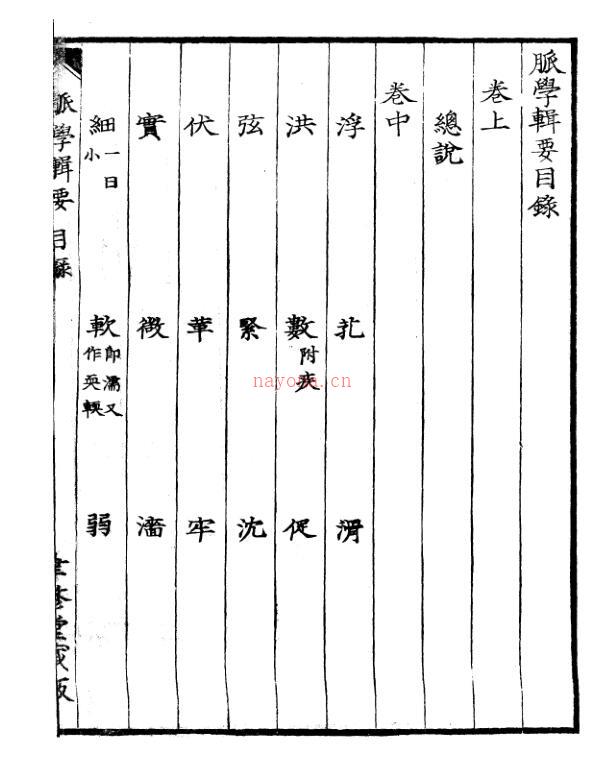 脈學輯要目錄
卷上
總說
卷中
浮 芤 滑
洪 數附疾 促
弦 緊 沈
伏 革 牢
實 微 濇
細一曰小 軟即濡又作耎輭 弱
脈學輯要 目錄
堂藏版
nayona.cn